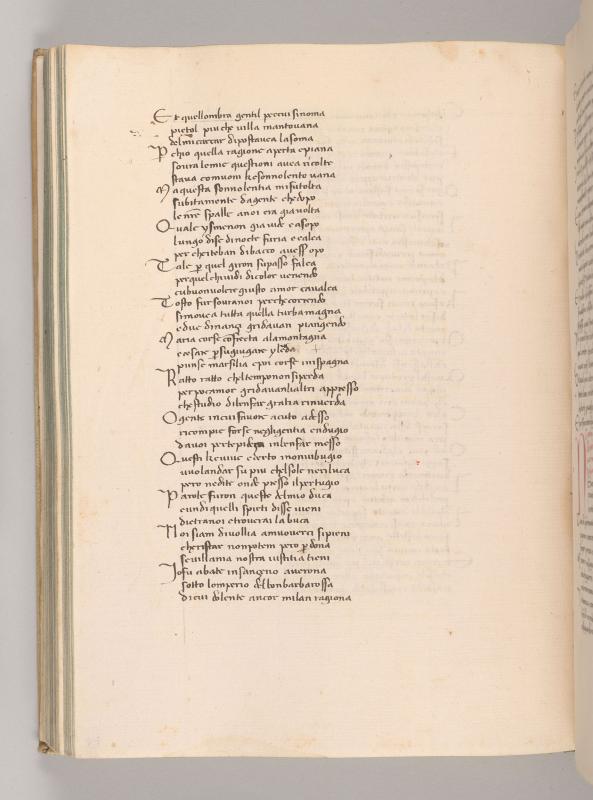 Et quellombra gentil per cui sinoma
pietol piu che villa mantovana
del mi carcar dipostavea lasoma
Perchio quella ragione aperta epiana
soura lemie questioni avea ricolte
stava comuom ke sonnolento vana
Ma questa sonnolentia mi fu tolta
subitamente dagente chedopo
le nrē spalle anoi era gia volta
Quale ysmenon gia vide easopo
lungo dise dinocte furia ecalca
per cheiteban dibacco avesser opo
Tale p quel giron suo passo falca
perquel chi vidi dicolor venendo
cui buon volere giusto amor cavalca
Tosto fur sovranoi perche correndo
simovea tutta quella turba magna
e due dinanzi gridavan piangendo
Maria corse confrecta alamontagna
e cesare p sugiugare ylerda
punse marsilia epoi corse inispagna
Ratto ratto cheltempo non siperda
per poco amor gridavanlialtri appresso
che studio diben far gratia rinverda
O gente in cui fervore acuto adesso
ricompie forse negligentia endugio
da voi per tepidecza inben far messo
Questi ke vive ecerto non vi bugio
vuolandar su piu chelsole neriluca
pero nedite onde presso ilpertugio
Parole furon queste delmio duca
e un di quelli spirti disse vieni
dietranoi etroverai la buca
Noi siam di vollia amuoverci sipieni
cheristar non potem pero pdona
se villania nostra iustitia tieni
Io fu abate in sangeno averona
sotto lomperio del bon barbarossa
di cui dolente ancor milan ragiona